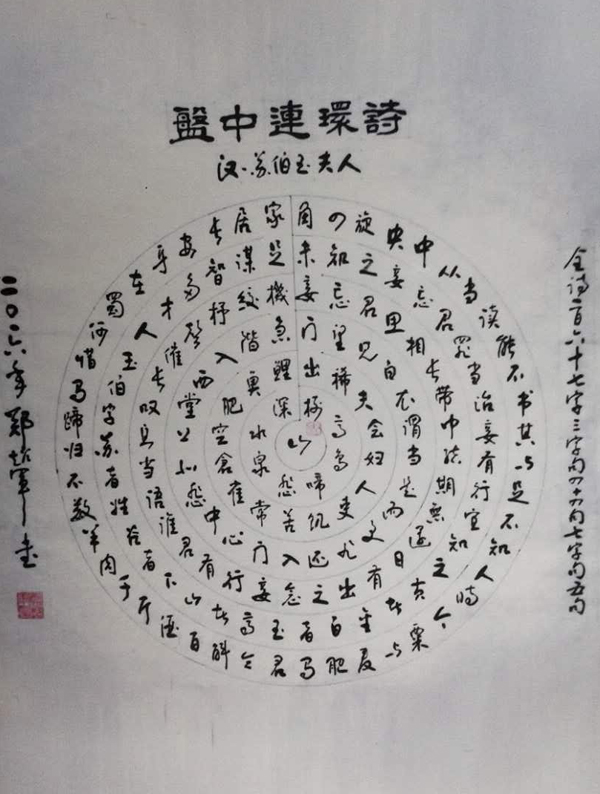 盤中連環詩
汉·苏伯玉夫人
全诗一百六十七字三字句四十句七字句五句
山树高鸟啼怨泉水深鲤鱼肥
空仓雀常苦饥吏人妇会夫稀
出门望见白衣谓当是而更非
还入门中心怨北上堂西入阶
急机绞杼声催长叹息当语谁
君有行妾念之出有日还期
结中带长相思君忘妾未知之
妾忘君罪当治妾有行宜知之
黄者金白者玉高者山下者谷
姓者苏字伯玉人才多智谋足
家居长安身在蜀何惜马蹄归不数
羊肉千斤酒百斛令君马肥麦与粟
今时人知不足与其书不能读
当从中央旋四角
二〇一六年 郑军书